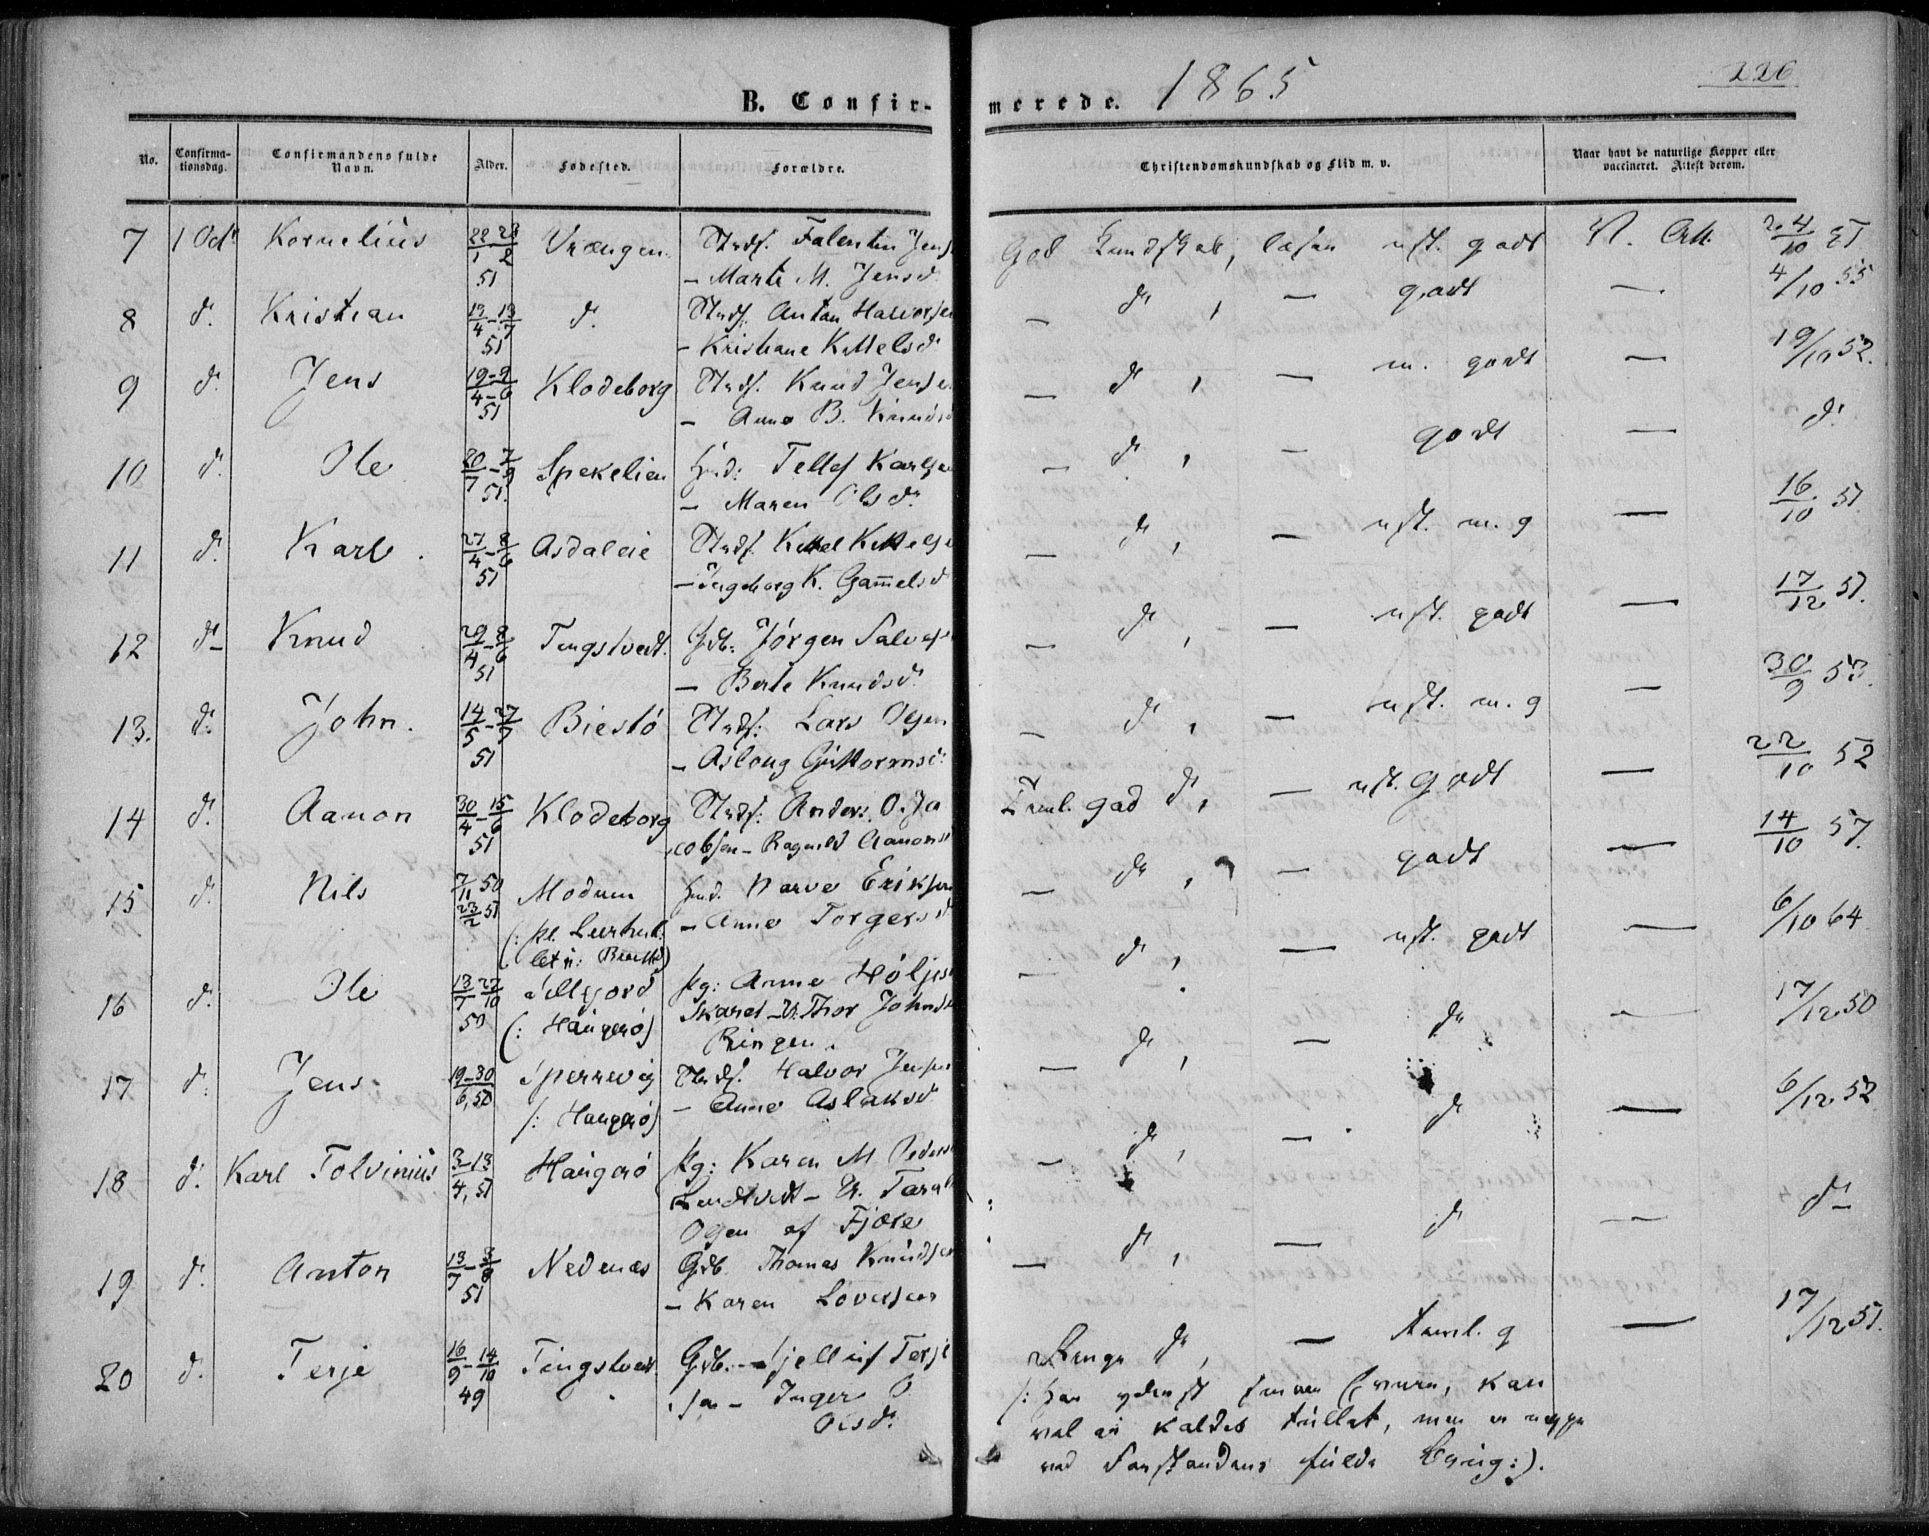 B. Confirmerede. 1865
226
No.
Confirmationsdag.
Confirmandens fulde Navn.
Alder.
Fødested.
Forældre.
Christendomskundskab og Flid m. v.
Naar havt de naturlige Kopper eller vaccineret. Attest derom.
7 1 Octr Kornelius 22/1 - 23/2 51 Vrængen Strdf. Falentin Jens
- Marte M. Jensd
God Kundskab, læser nst. godt V. Att. 24/10 51
8 d. Kristian 13/4 - 13/7 51 d. Strdf: Anton Halvorsen
- Kristiane Kittelsd
- dr, - godt - 4/10 55
9 d. Jens 19/4 - 9/6 51 Klodeborg Strdf. Knud Jense
- Anne B. Knuds
- dr, - m. godt - 19/10 52.
10 d. Ole 20/7 - 7/9 51. Spekelien Hmd: Tellef Karlsen
- Maren Olsdr.
- dr, - godt - dr
11 d. Karl. 27/4 - 8/6 51 Asdaleie Strdf. Kittel Kittelse
- Ingeborg K. Gammelsd
- dr, - nst. m. g - 16/10 51.
12 dr Knud 29/4 - 8/6 51 Tingstvedt. Grdb: Jørgen Salves
- Berte Knudsdr.
- dr, - nst. godt - 17/12 51.
13. d. John. 14/5 - 27/7 51 Biestø Strdf: Lars Olsen
- Aslaug Guttormsd:
- dr, - nst. m. g - 30/9 53.
14 d. Aanon 30/4 - 15/6 51 Klodeborg Strdf: Anders O. Ja
cobsen - Ragnild Aanons
Temml. god dr, - nst. godt - 22/10 52
15 d. Nils 7/11 50 23/2 51 Modum Hmd. Narve Eriksen
- Anne Torgersd
(: pl.
- dr, - godt - 14/10 57.
16 d. Ole 13/7 22/10 50 Silljord
(: Haugerø)
pg: Anne Høljes
Skaret - U. Thor Johnse
Ringen.
- dr, - nst. godt - 6/10 64
17 d. Jens 19-30/6, 50 Sperrevig
/: Haugerø)
Strdf. Halvor Jens
- Anne Aslaksd
- dr, - dr - 17/12 50
18 d. Karl Tolvinius 3-13/4, 51 Haugerø pg: Karen M Peders
Lundtvedt - U. Taral
Olsen af Fjære
- dr, - dr - 6/12 52
19 d. Anton 13/7 - 3/8 51 Nedenæs Grdb. Thomas Knudsen
- Karen Lovise
- dr, - dr - dr
20 d. Terje 16/9 - 14/10 49 Tingstvedt Grdb. Tjelluf Terje
sen - Inger O
Olsdr.
Ringe dr, - temml. g - 17/12 51.
/: Har yderst Evner, kan
vel ei kaldes tullet, men er neppe
ved Forstandens fulde Brug:).